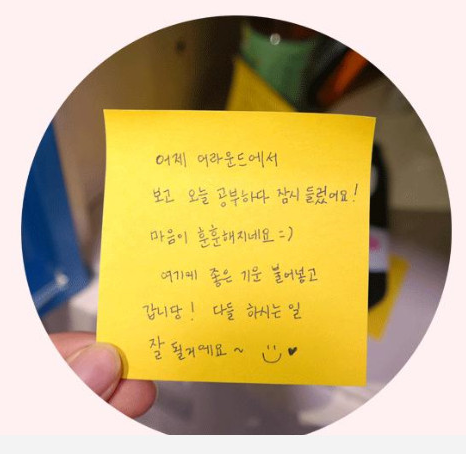 어제 어라운드에서
보고 오늘 공부하다 잠시 들렀어요!
마음이 훈훈해지네요 =)
여기에 좋은 기운 불어넣고
갑니당! 다들 하시는 일
잘 될거예요 ~ ♥